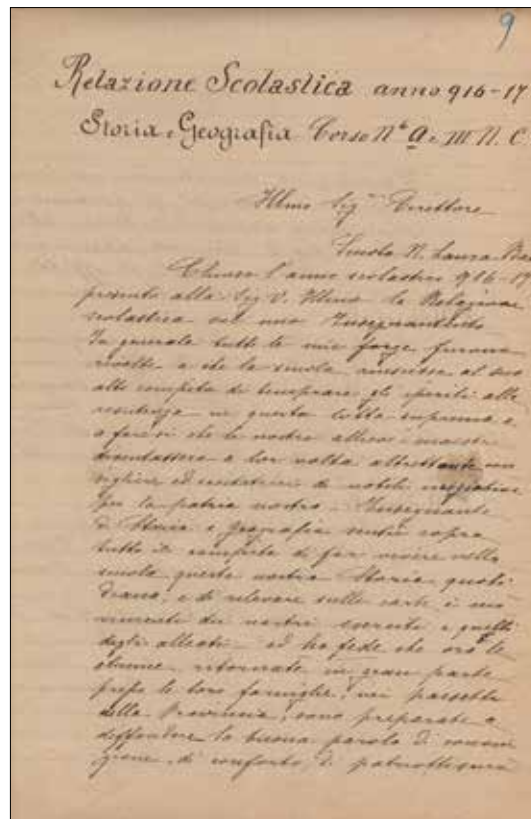 9
Relazione Scolastica anno 916-17
Storia e Geografia Corso N.le a e III N. C.
Illmo Sig.r Direttore
Scuola N. Laura Bas
Chiuso l'anno scolastico 916-17
presento alla Sig. V. Illma la Relazione
scolastica del mio Insegnamento
In generale tutte le mie forze furono
rivolte a che la scuola riuscisse al suo
alto compito di temprare gli spiriti alla
resistenza in questa lotta suprema e
a far sì che le nostre allieve maestre
diventassero a lor volta altrettante con
sigliere ed eccitatrici di nobili iniziative
per la patria nostra. Insegnante
di Storia e Geografia sentii sopra
tutto il compito di far vivere nella
scuola questa nostra Storia quoti
diana, e di rilevare sulle carte i mo
vimenti dei nostri eserciti e quelli
degli alleati ed ho fede che ora le
alunne ritornate in gran parte
presso le loro famiglie, nei paesetti
della Provincia, sono preparate a
diffondere la buona parola di
di conforto, di patriottismo